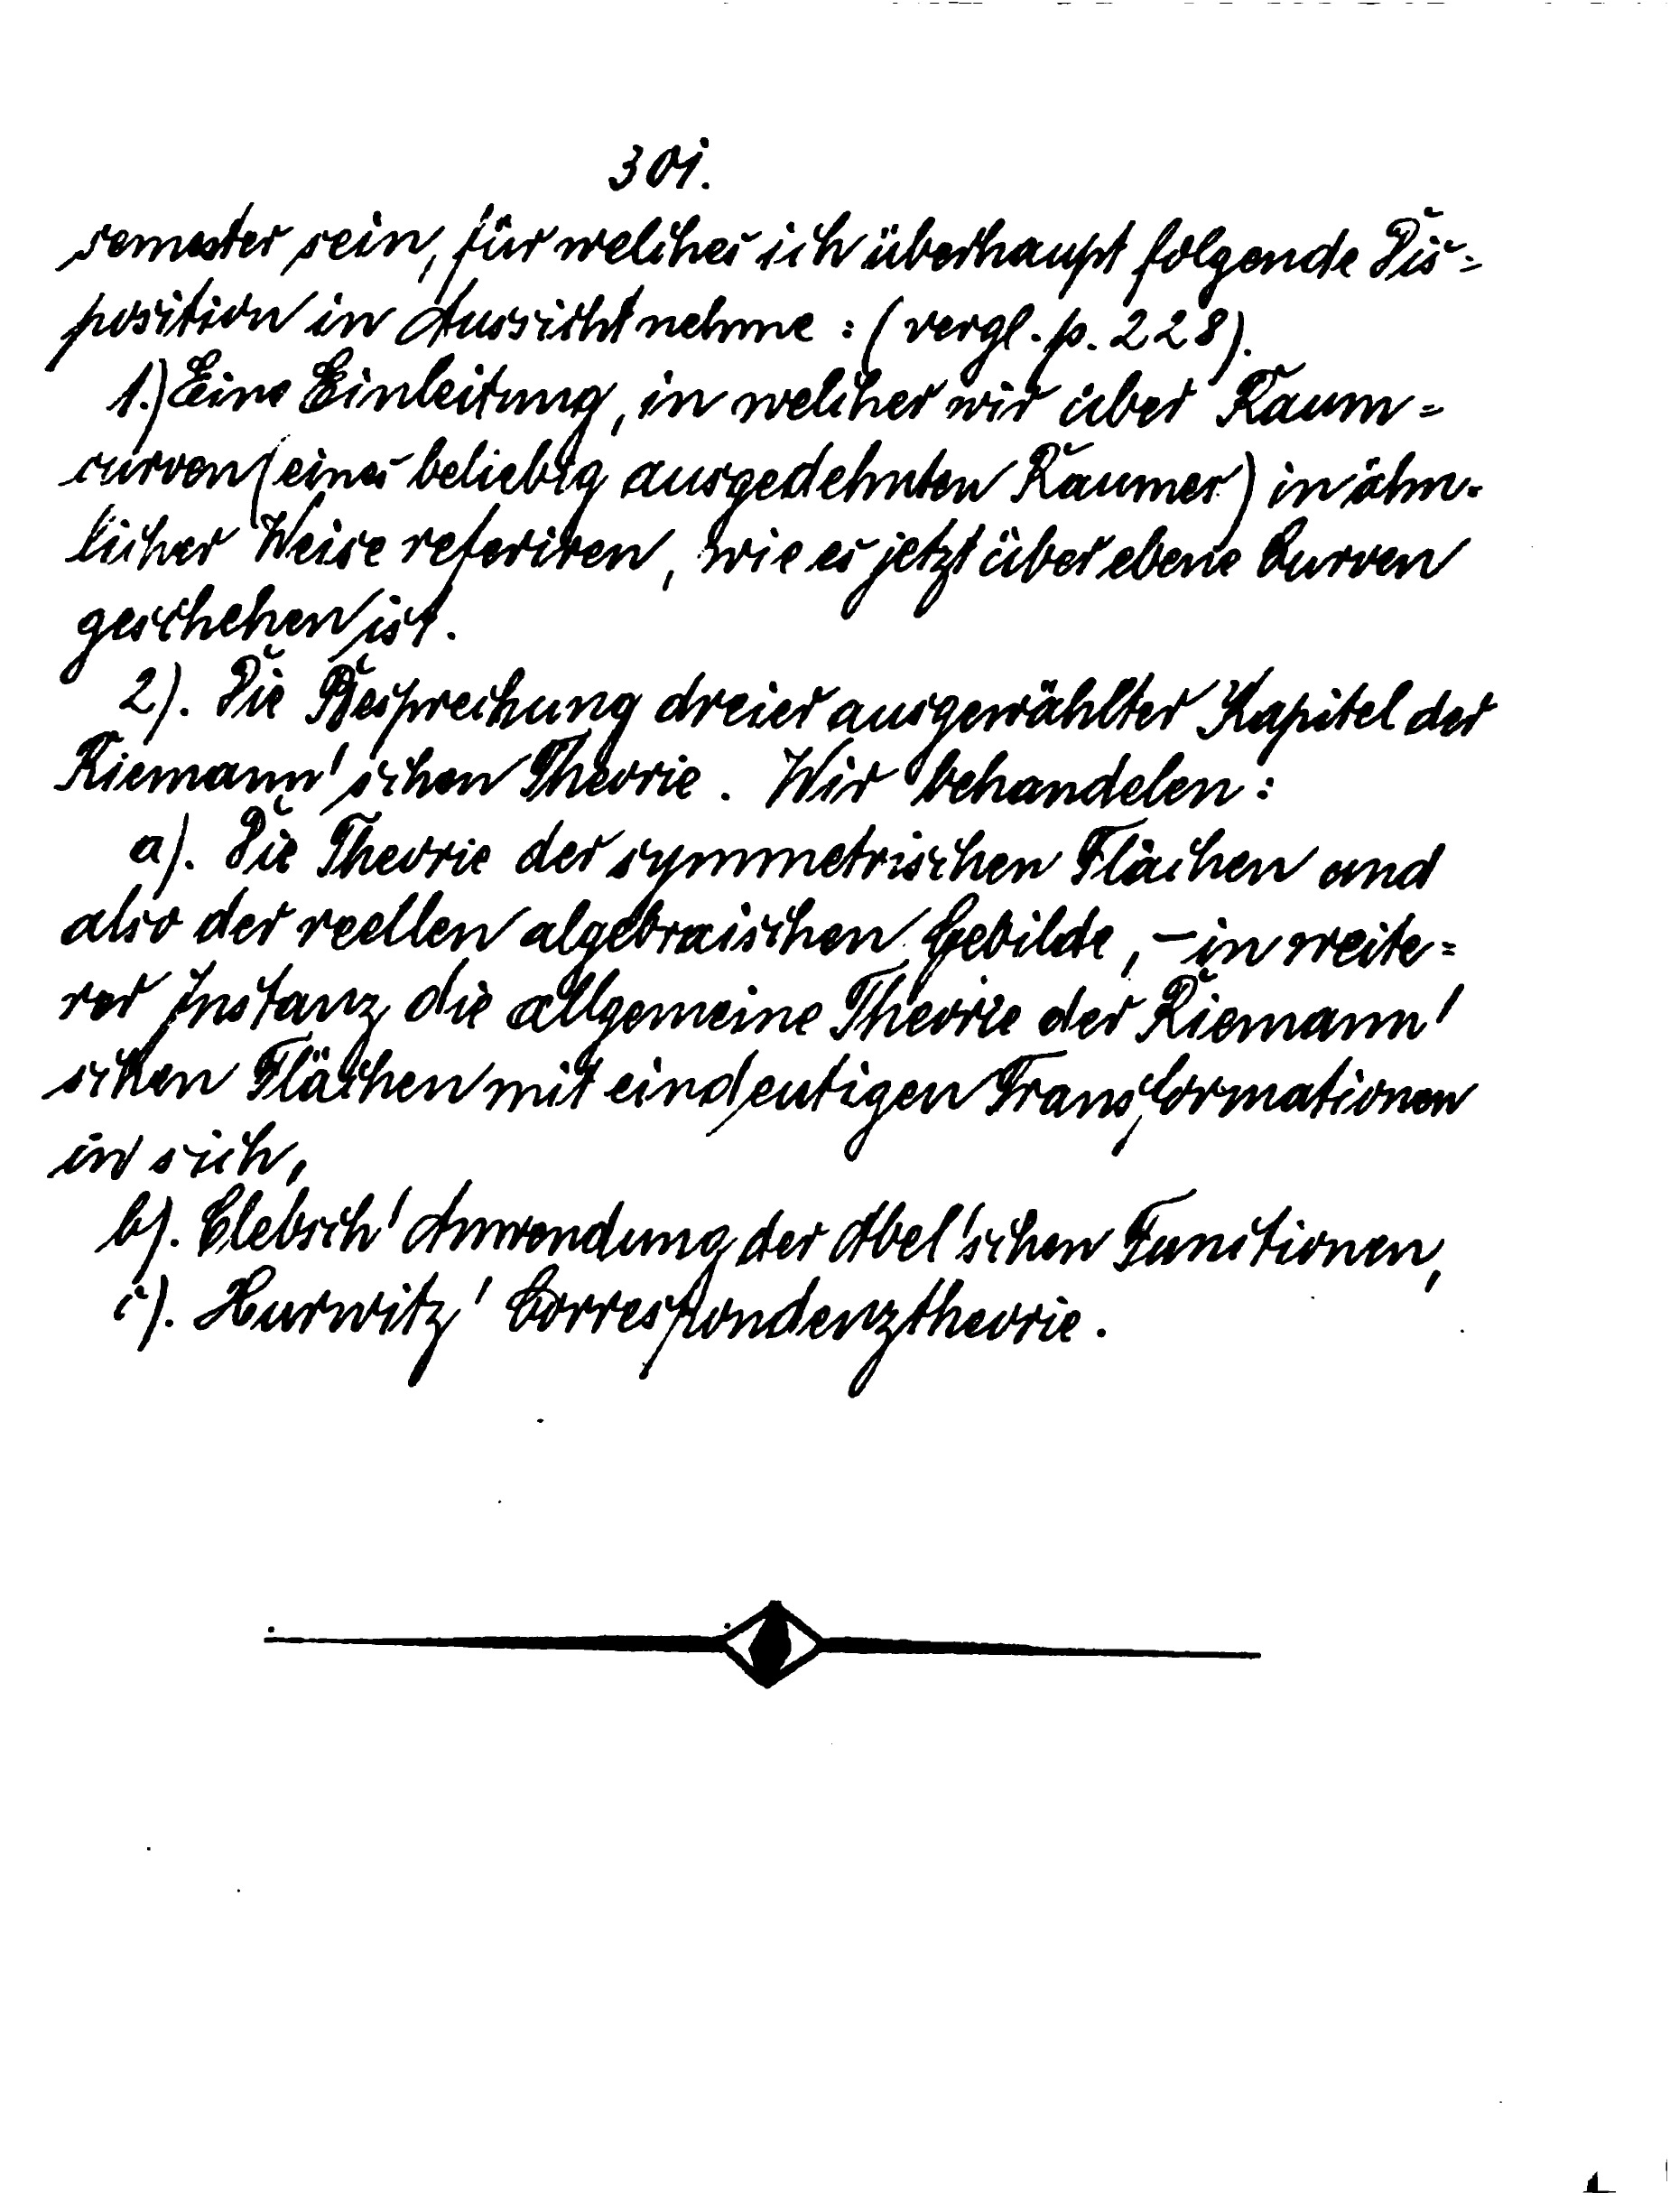 301.
semester sein, für welches ich überhaupt folgende Dis=
position in Aussicht nehme: (vergl. p. 228).
1.) Eine Einleitung, in welcher wir über Raum=
curven (eines beliebig ausgedehnten Raumes) in ähn-
licher Weise referiren, wie es jetzt über ebene Curven
geschehen ist.
2). Die Besprechung dreier ausgewählter Kapitel der
Riemann'schen Theorie. Wir behandelen:
a). Die Theorie der symmetrischen Flächen und
also der reellen algebraischen Gebilde, – in weite=
rer Instanz die allgemeine Theorie der Riemann'
schen Flächen mit eindeutigen Transformationen
in sich,
b). Clebsch' Anwendung der Abel'schen Functionen,
c). Hurwitz' Correspondenztheorie.